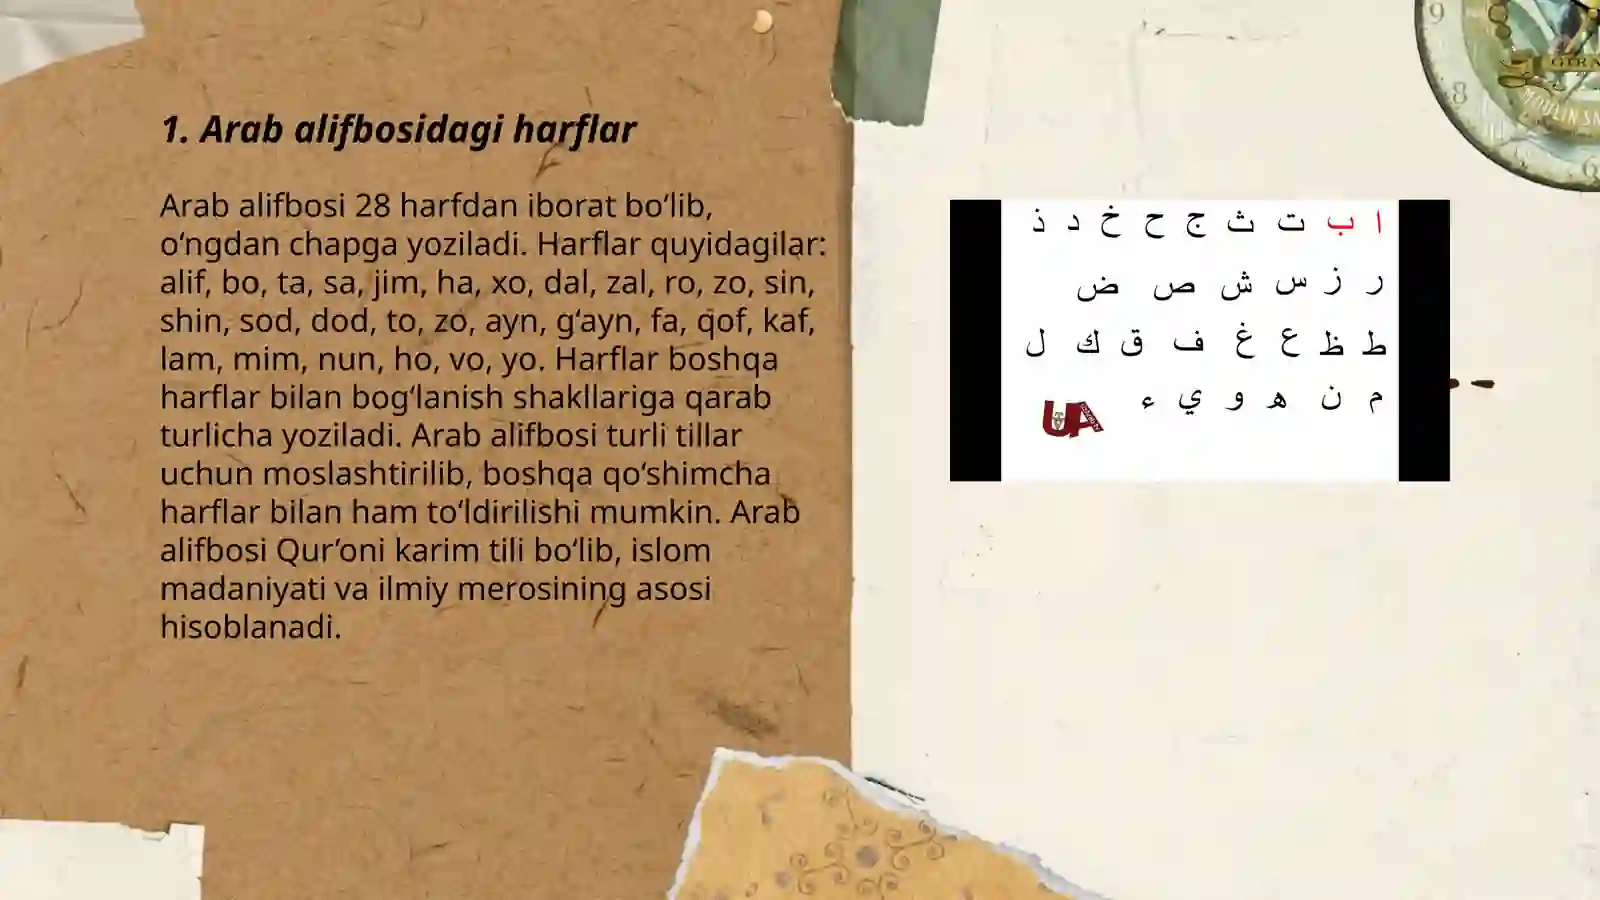 1. Arab alifbosidagi harflar
Arab alifbosi 28 harfdan iborat bo‘lib,
o‘ngdan chapga yoziladi. Harflar quyidagilar:
alif, bo, ta, sa, jim, ha, xo, dal, zal, ro, zo, sin,
shin, sod, dod, to, zo, ayn, g‘ayn, fa, qof, kaf,
lam, mim, nun, ho, vo, yo. Harflar boshqa
harflar bilan bog‘lanish shakllariga qarab
turlicha yoziladi. Arab alifbosi turli tillar
uchun moslashtirilib, boshqa qo‘shimcha
harflar bilan ham to‘ldirilishi mumkin. Arab
alifbosi Qur’oni karim tili bo‘lib, islom
madaniyati va ilmiy merosining asosi
hisoblanadi.
ا ب ت ث ج ح خ د ذ
ر ز س ش ص ض
ط ظ ع غ ف ق ك ل
م ن ه و ي ء
UA
9
8
6
MOULIN